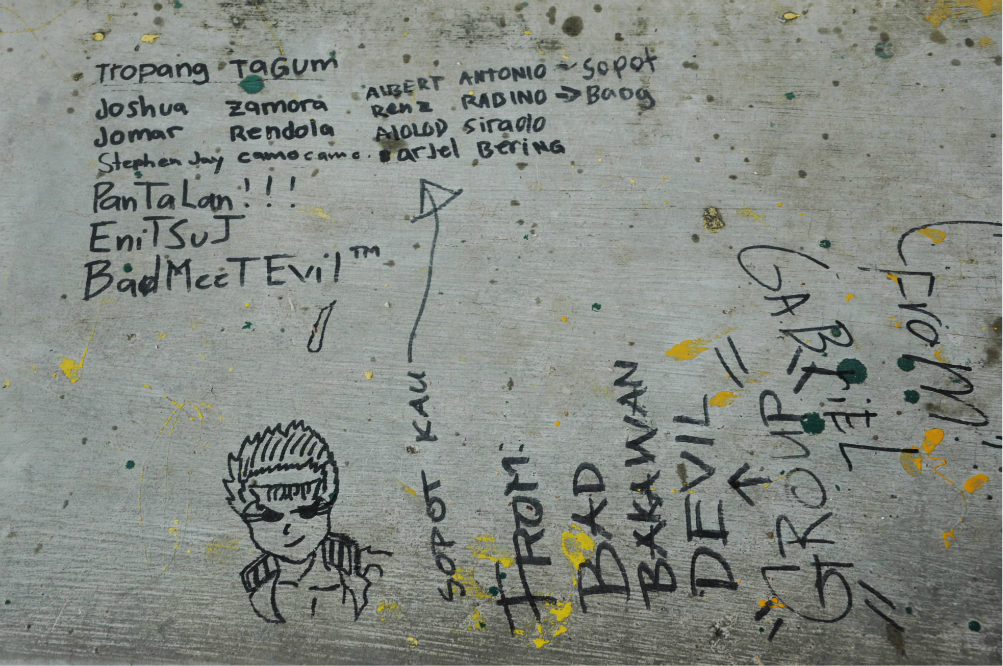 Tropang TaGum
Joshua Zamora
Jomar Rendola
Stephen Jay camocamo.
PanTaLan!!!
EniTSuJ
BadMeeTEvil™
ALBERT ANTONIO - Sopot
Renz RABINO → Baog
SiraDo
arJel BeriNG
SOPOT KAU
FROM:
BAD
BAKAWAN
DEVIL
GROUP
From